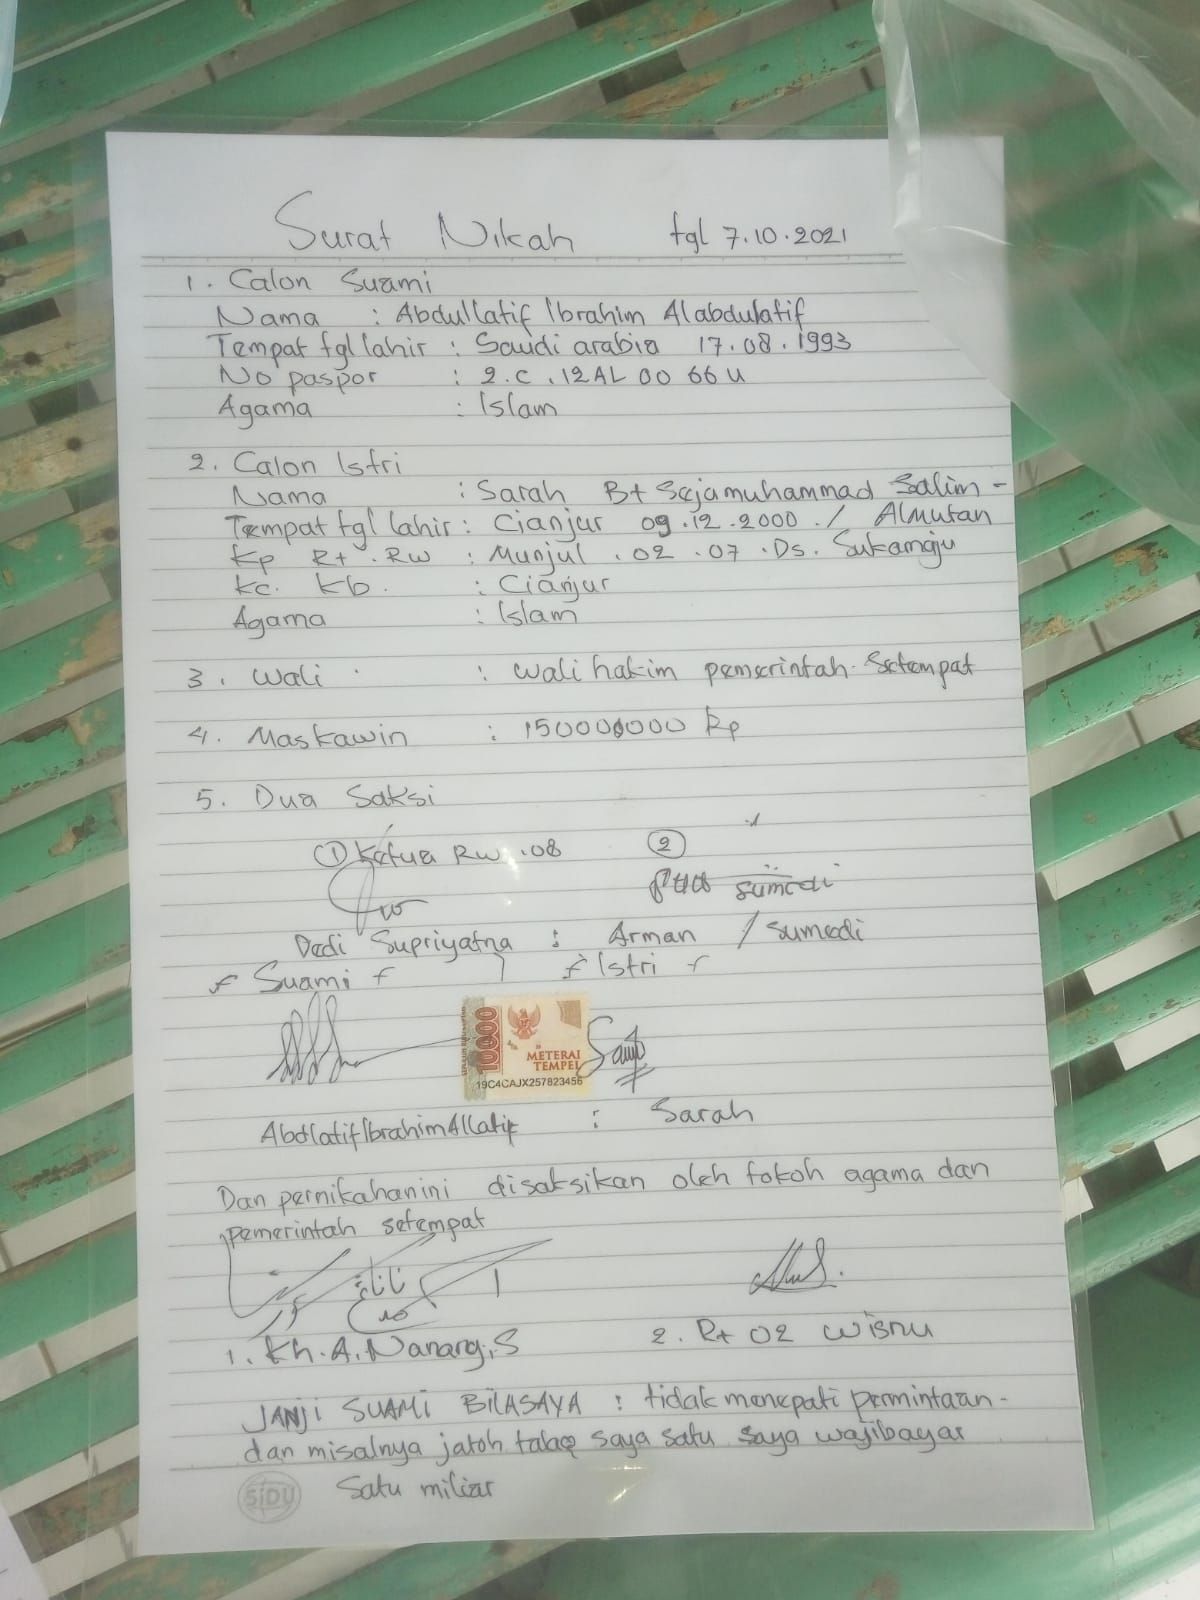 Surat Nikah tgl 7.10.2021
1. Calon Suami
Nama : Abdullatif Ibrahim Alabdulatif
Tempat tgl lahir : Saudi arabia 17.08.1993
No paspor : 2.C.12AL 00 66 U
Agama : Islam
2. Calon Istri
Nama : Sarah Bt Sejamuhammad Salim -
Tempat tgl lahir : Cianjur 09.12.2000 / Almutan
Kp Rt. RW : Munjul .02 .07 .Ds. Sukamaju
Kc. Kb. : Cianjur
Agama : Islam
3. Wali : Wali hakim pemerintah Setempat
4. Maskawin : 150000000 Rp
5. Dua Saksi
① Ketua RW .08 ②
sumedi
Dedi Supriyatna : Arman / Sumedi
Suami Istri
10000
METERAI
TEMPEL
19C4CAJX257823456
Abdlatif Ibrahim Allatif : Sarah
Dan pernikahan ini disaksikan oleh tokoh agama dan
pemerintah setempat
1. Kh. A. Nanang, S 2. Rt 02 Wisnu
JANJI SUAMI BILASAYA : tidak menepati permintaan -
dan misalnya jatoh talaq saya satu saya wajibayar
Satu miliar
SIDU